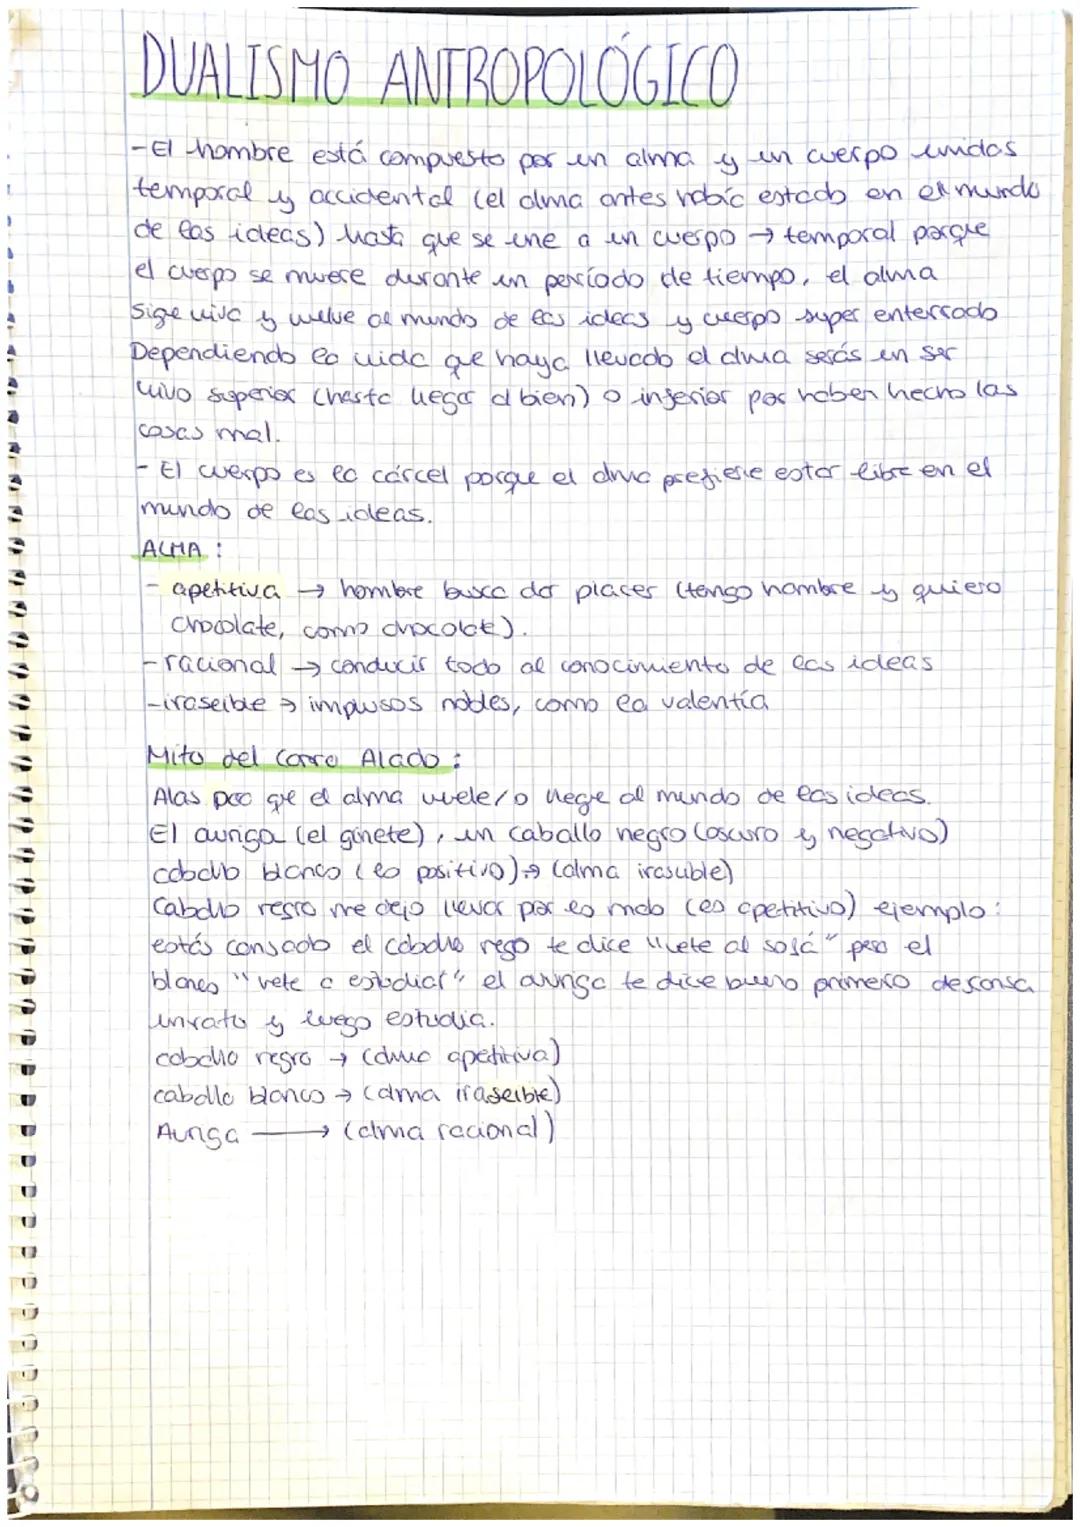 DUALISMO ANTROPOLÓGICO
-El hombre está compuesto por un alma y un cuerpo unidos
temporal y accidental (el alma antes había estado en el mundo
de las ideas) hasta que se une a un cuerpo → temporal porque
el cuerpo se muere durante un período de tiempo, el alma
sige viva y vuelve al mundo de las ideas y cuerpo super enterrado
Dependiendo la vida que haya llevado el alma serás un ser
vivo superior (hasta llegar al bien) o inferior por haber hecho las
cosas mal.
- El cuerpo es la cárcel porque el alma prefiere estar libre en el
mundo de las ideas.
ALMA :
- apetitiva → hombre busca dar placer (tengo hambre y quiero
chocolate, como chocolate).
-racional → conducir todo al conocimiento de las ideas
-iraseible → impulsos nobles, como la valentía
Mito del Carro Alado :
Alas para que el alma vuele/o llege al mundo de las ideas.
El auriga (el ginete), un caballo negro (oscuro y negativo)
caballo blanco (lo positivo) → (alma irascible)
Caballo negro me dejo llevar por lo malo (lo apetitivo) ejemplo:
estás cansado el caballo nego te dice "vete al sofá" pero el
blanco "vete a estudiar" el auriga te dice bueno primero descansa
un rato y luego estudia.
caballo negro → (alma apetitiva)
caballo blanco → (alma iraseible)
Auriga → (alma racional)